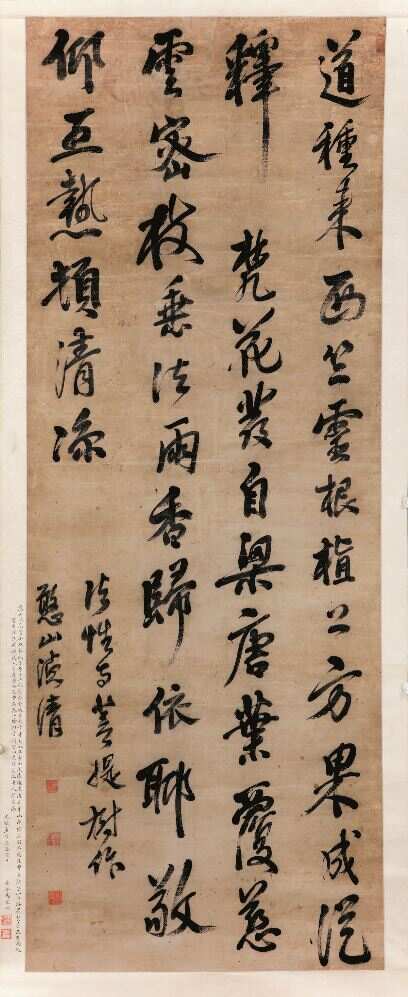 道種來西竺靈根植上方果成從
釋梵花發自梁唐葉覆慈
雲密枝垂法雨香歸依聊敬
仰五熱頓清涼
法性寺菩提樹作
憨山德清